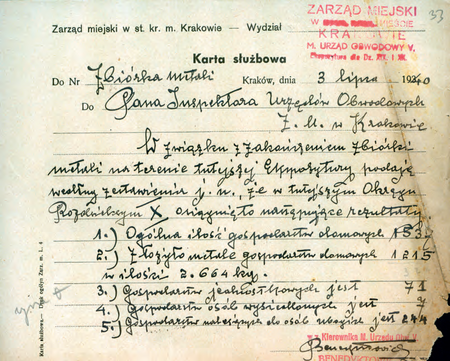 33
ZARZĄD MIEJSKI
W KRAKOWIE
M. URZĄD OBWODOWY V.
Zarząd miejski w st. kr. m. Krakowie — Wydział
Karta służbowa
Do Nr Zbiórka metali Kraków, dnia 3 lipca 1940
Do Pana Inspektora Urzędów Obwodowych
Z. M. w Krakowie
W związku z zakończeniem zbiórki
metali na terenie tutejszej Ekspozytury podaję
według zestawienia j. n., że w tutejszym Okręgu
Rozdzielczym X osiągnięto następujące rezultaty
1.) Ogólna ilość gospodarstw domowych 153
2.) Złożyło metale gospodarstw domowych 1215
w ilości 2.664 kg.
3.) Gospodarstw jednoosobowych jest 71
4.) Gospodarstw osób wysiedlonych jest 7
5.) Gospodarstw należących do osób ubogich jest 244
Kierownik M. Urzędu Obw. V
BENEDYKTOWICZ
Karta służbowa. — Druk ogólny Zarz. m. L. 4